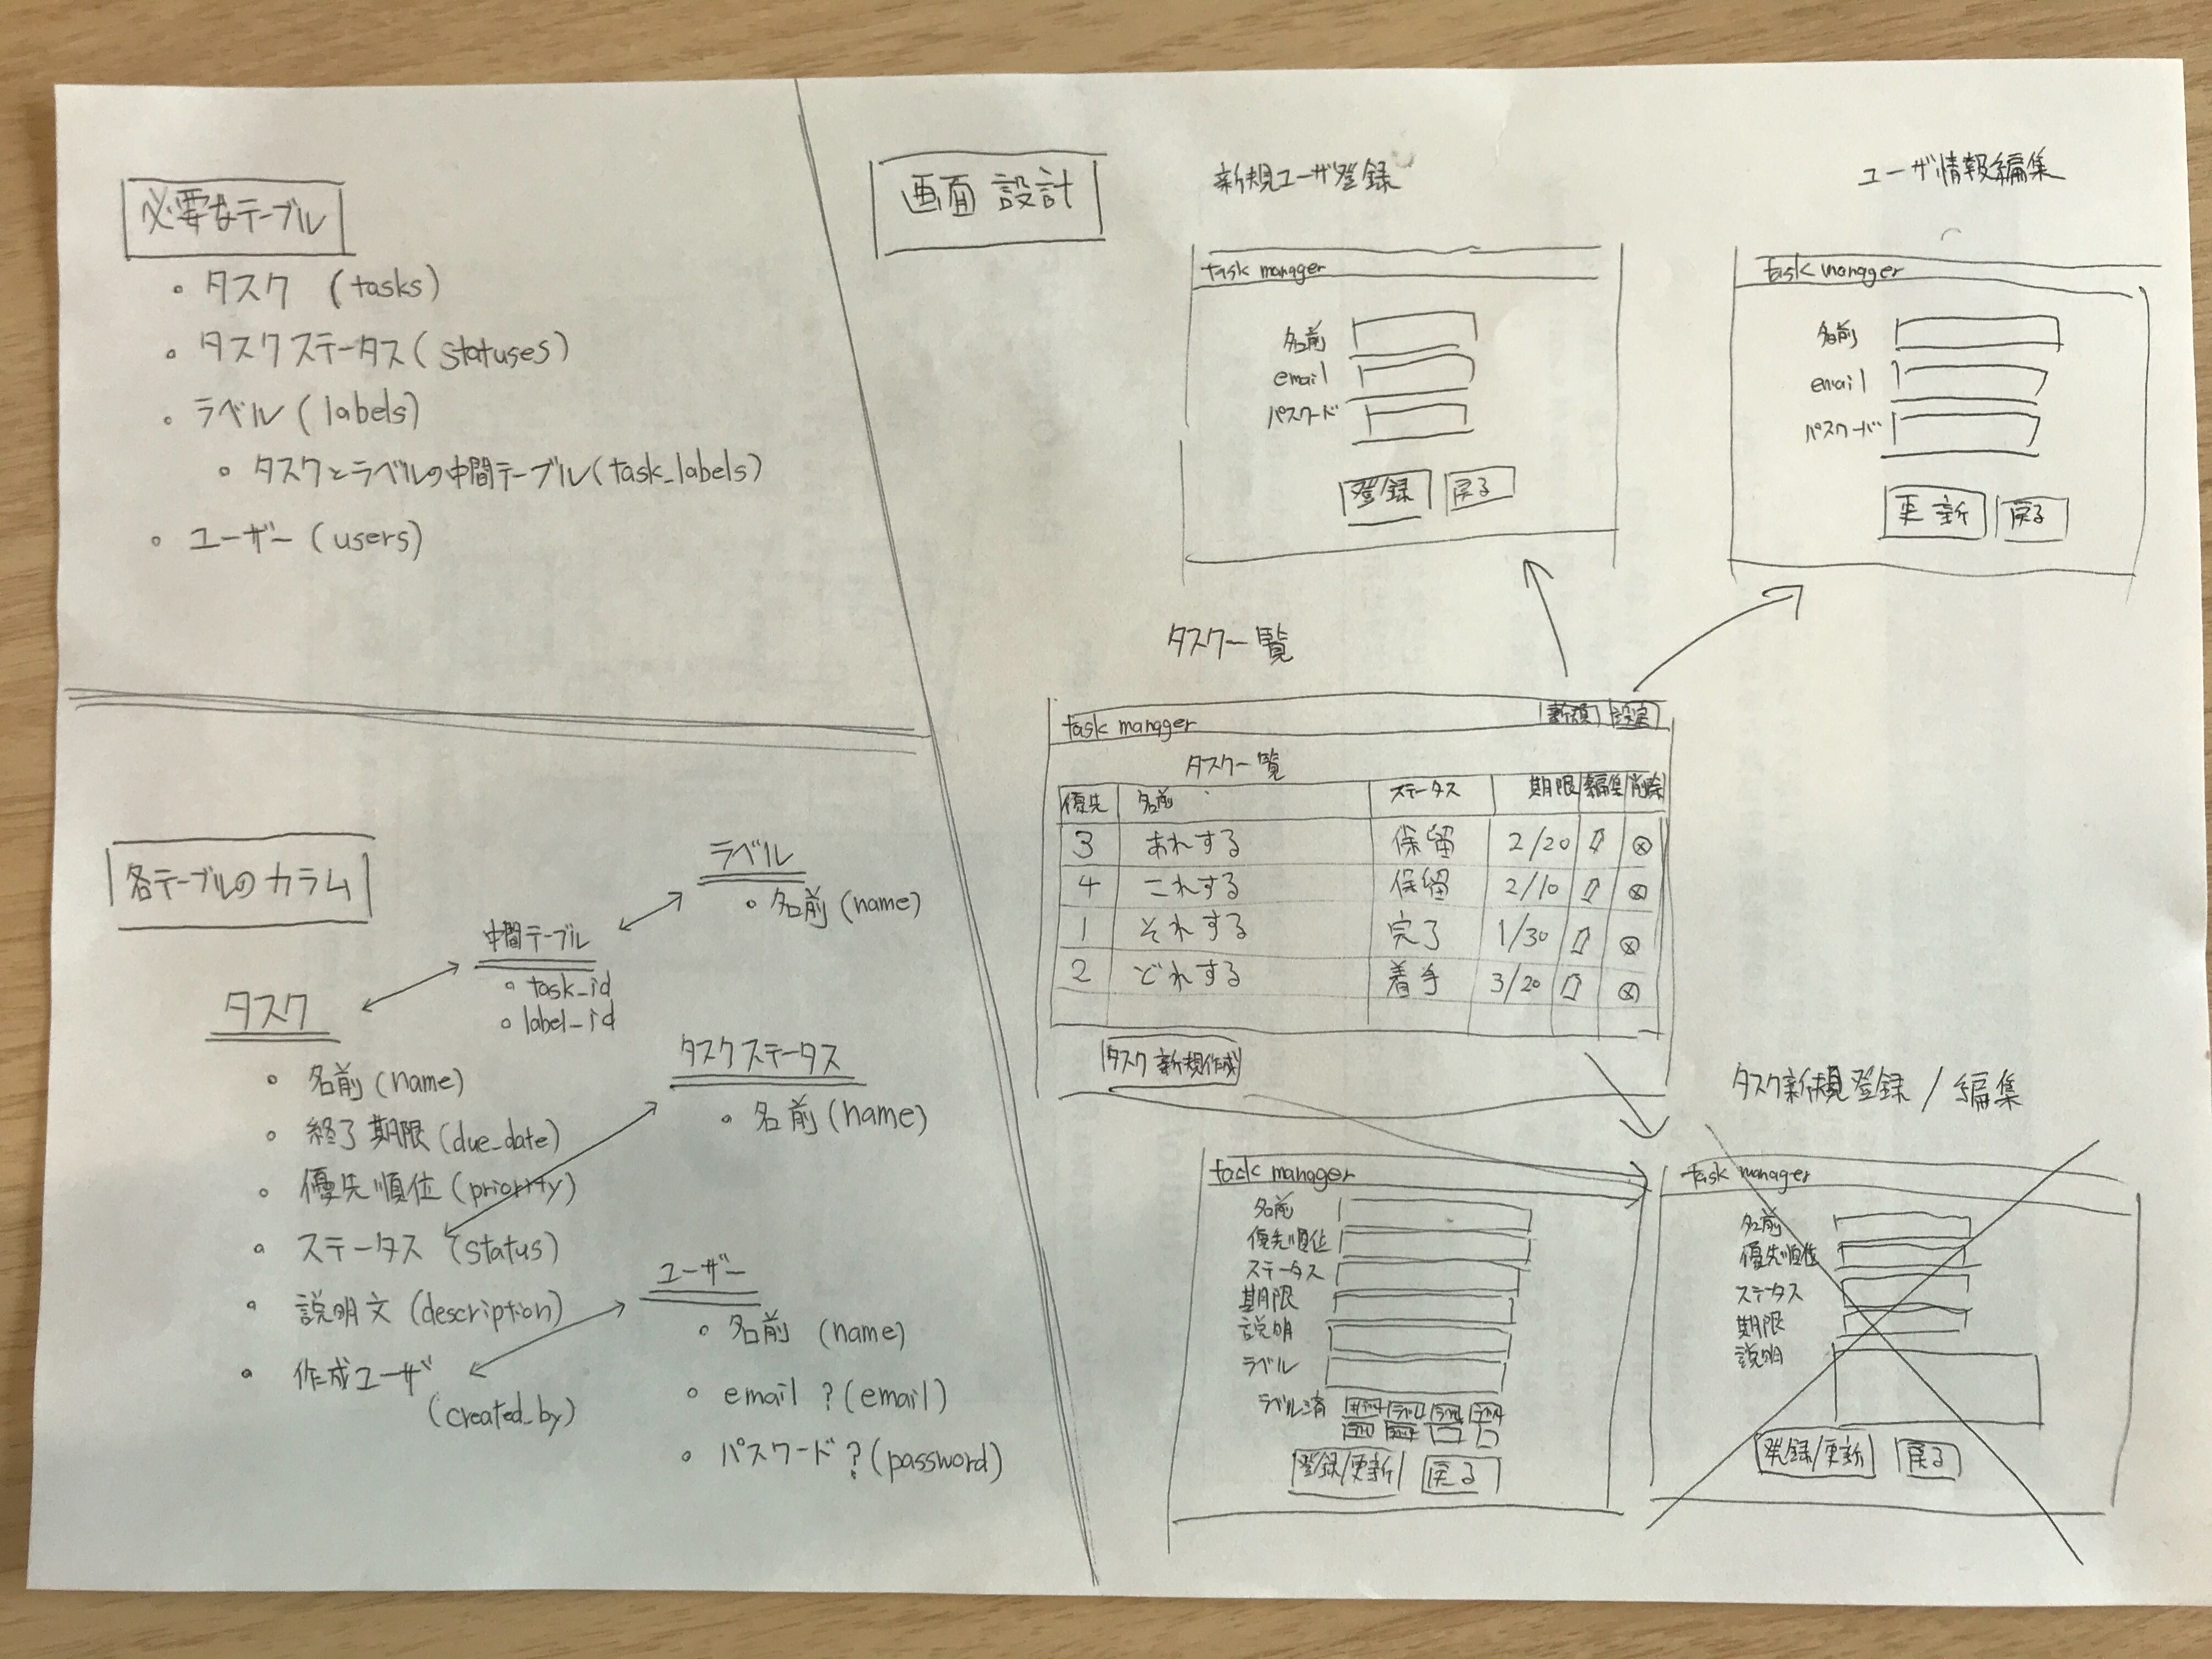 必要なテーブル
• タスク (tasks)
• タスクステータス (statuses)
• ラベル (labels)
• タスクとラベルの中間テーブル (task_labels)
• ユーザー (users)
各テーブルのカラム
ラベル
• 名前 (name)
中間テーブル
• task_id
• label_id
タスク
• 名前 (name)
• 終了期限 (due_date)
• 優先順位 (priority)
• ステータス (status)
• 説明文 (description)
• 作成ユーザ
(created_by)
タスクステータス
• 名前 (name)
ユーザー
• 名前 (name)
• email ? (email)
• パスワード ? (password)
画面設計
新規ユーザ登録
task manager
名前
email
パスワード
登録 戻る
ユーザ情報編集
task manager
名前
email
パスワード
更新 戻る
タスク一覧
task manager 新規 設定
タスク一覧
優先 名前 ステータス 期限 編集 削除
3 あれする 保留 2/20
4 これする 保留 2/10
1 それする 完了 1/30
2 どれする 着手 3/20
タスク新規作成
タスク新規登録 / 編集
task manager
名前
優先順位
ステータス
期限
説明
ラベル
ラベル済
登録/更新 戻る
task manager
名前
優先順位
ステータス
期限
説明
登録/更新 戻る